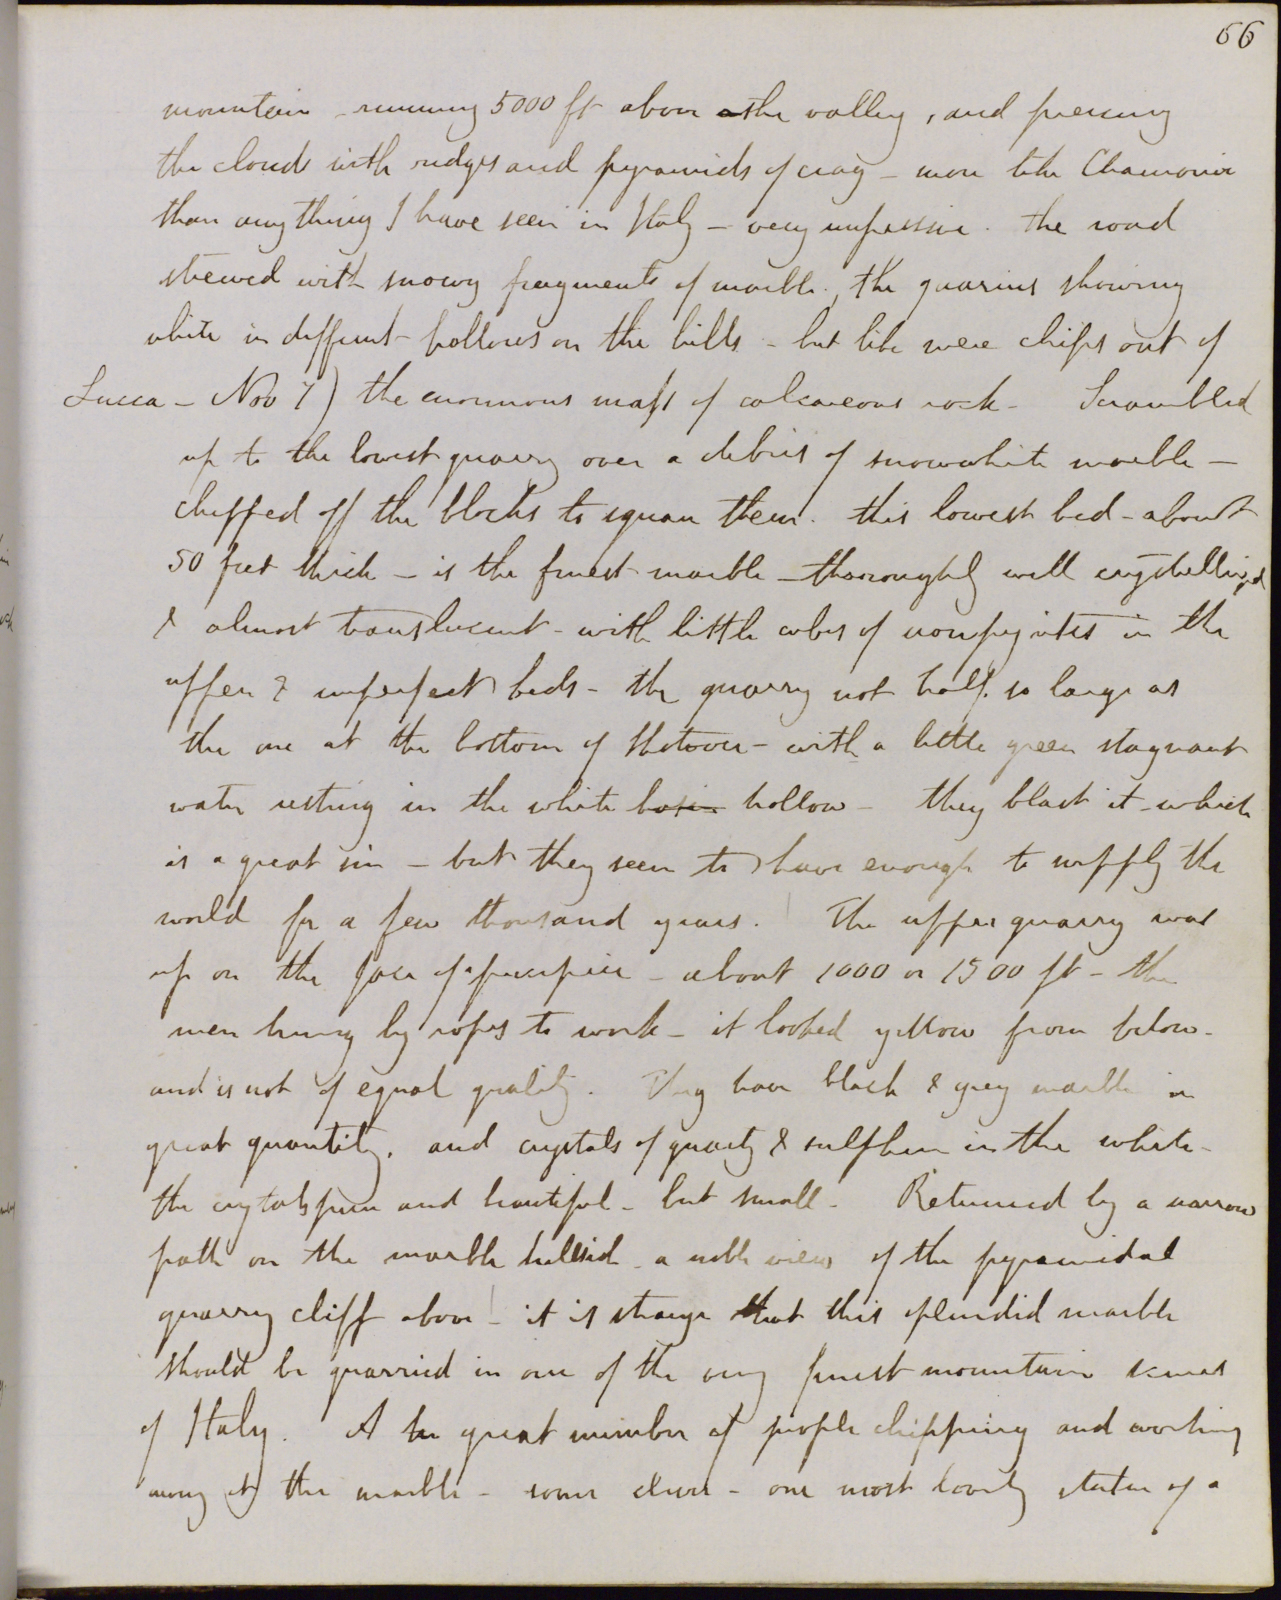 66
mountain running 5000 ft above the valley, and piercing
the clouds with ridges and pyramids of crag – more like Chamonix
than anything I have seen in Italy – very impressive. The road
strewed with snowy fragments of marble, the quarries showing
white in different hollows on the hills – but like mere chips out of
Lucca – Nov 7) the enormous mass of calcareous rock – Scrambled
up to the lowest quarry over a debris of snowwhite marble –
chipped off the blocks to square them. this lowest bed – about
50 feet thick – is the finest marble – thoroughly well crystallized
& almost translucent – with little cubes of iron pyrites in the
upper & imperfect beds – the quarry not half so large as
the one at the bottom of Shotover – with a little green stagnant
water resting in the white basin hollow – they blast it – which
is a great sin – but they seem to have enough to supply the
world for a few thousand years. The upper quarry was
up on the face of precipice – about 1000 or 1500 ft – the
men hung by ropes to work – it looked yellow from below –
and is not of equal quality. They have black & grey marble in
great quantity, and crystals of quartz & sulphur in the white –
the crystals pure and beautiful – but small – Returned by a narrow
path on the marble hillside – a noble view of the pyramidal
quarry cliff above – it is strange that this splendid marble
should be quarried in one of the very finest mountain scenes
of Italy. A great number of people chipping and working
away at the marble – some clever – one most lovely statue of a